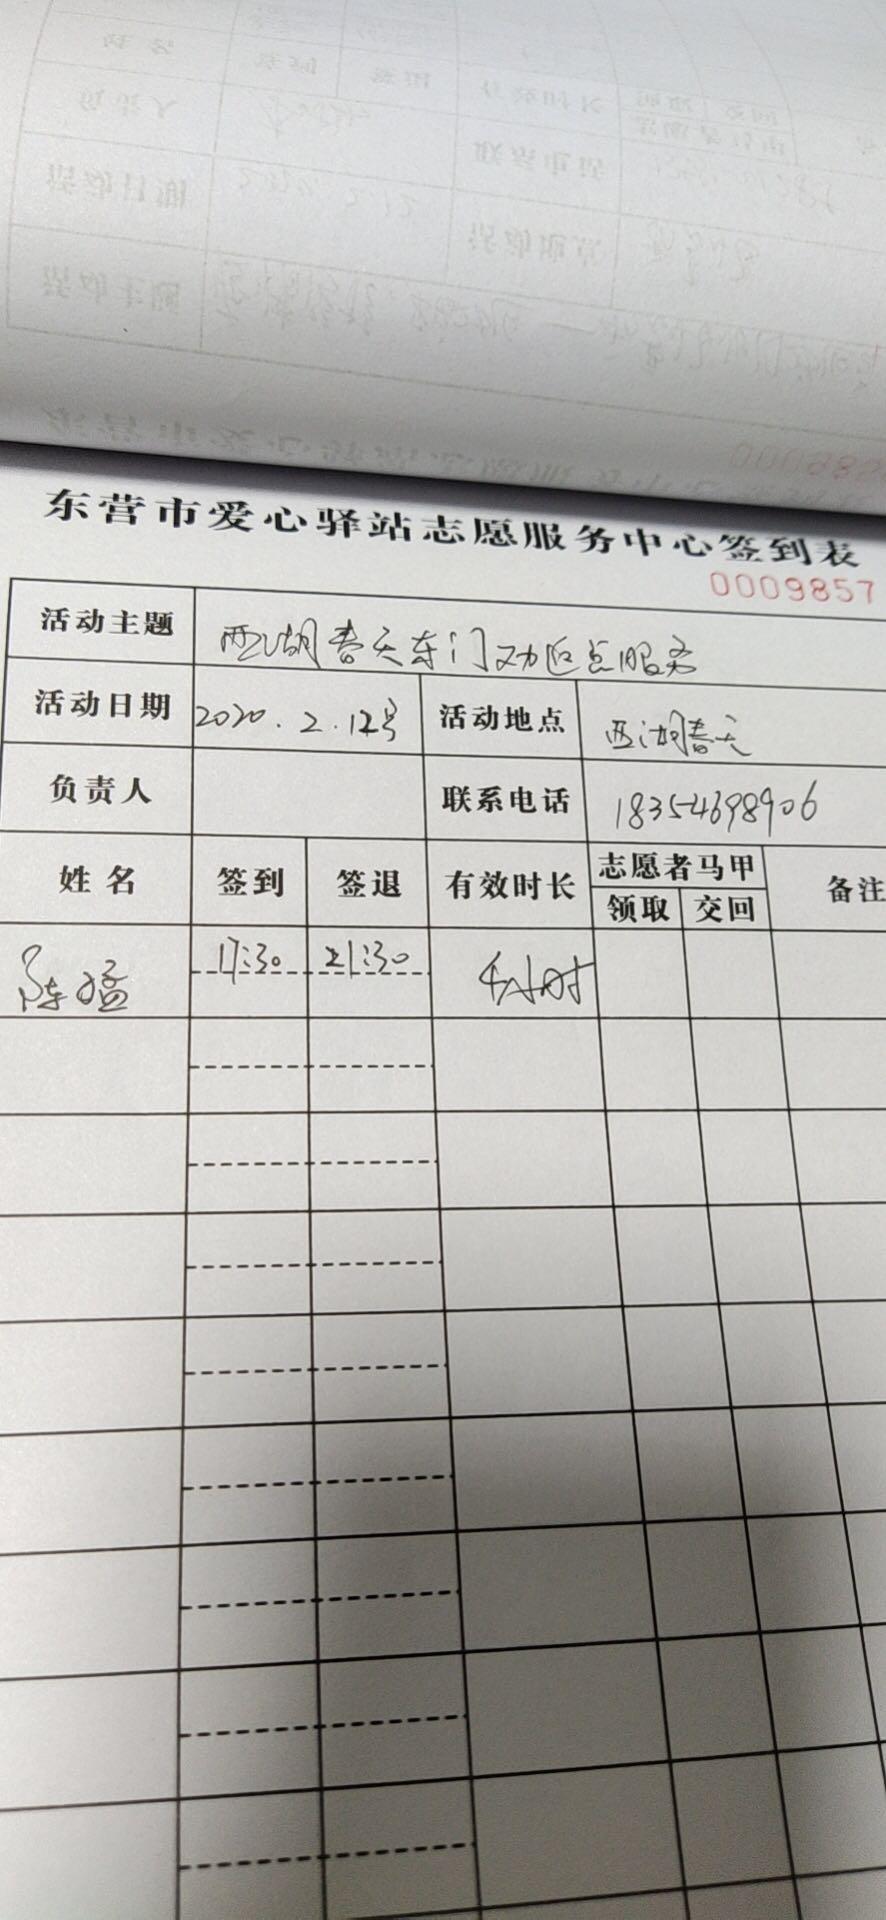 东营市爱心驿站志愿服务中心签到表
0009857
活动主题 西湖春天东门劝返点服务
活动日期 2020.2.12号 活动地点 西湖春天
负责人 联系电话 18354698906
姓名 签到 签退 有效时长 志愿者马甲 备注
领取 交回
陈猛 17:30 21:30 4小时